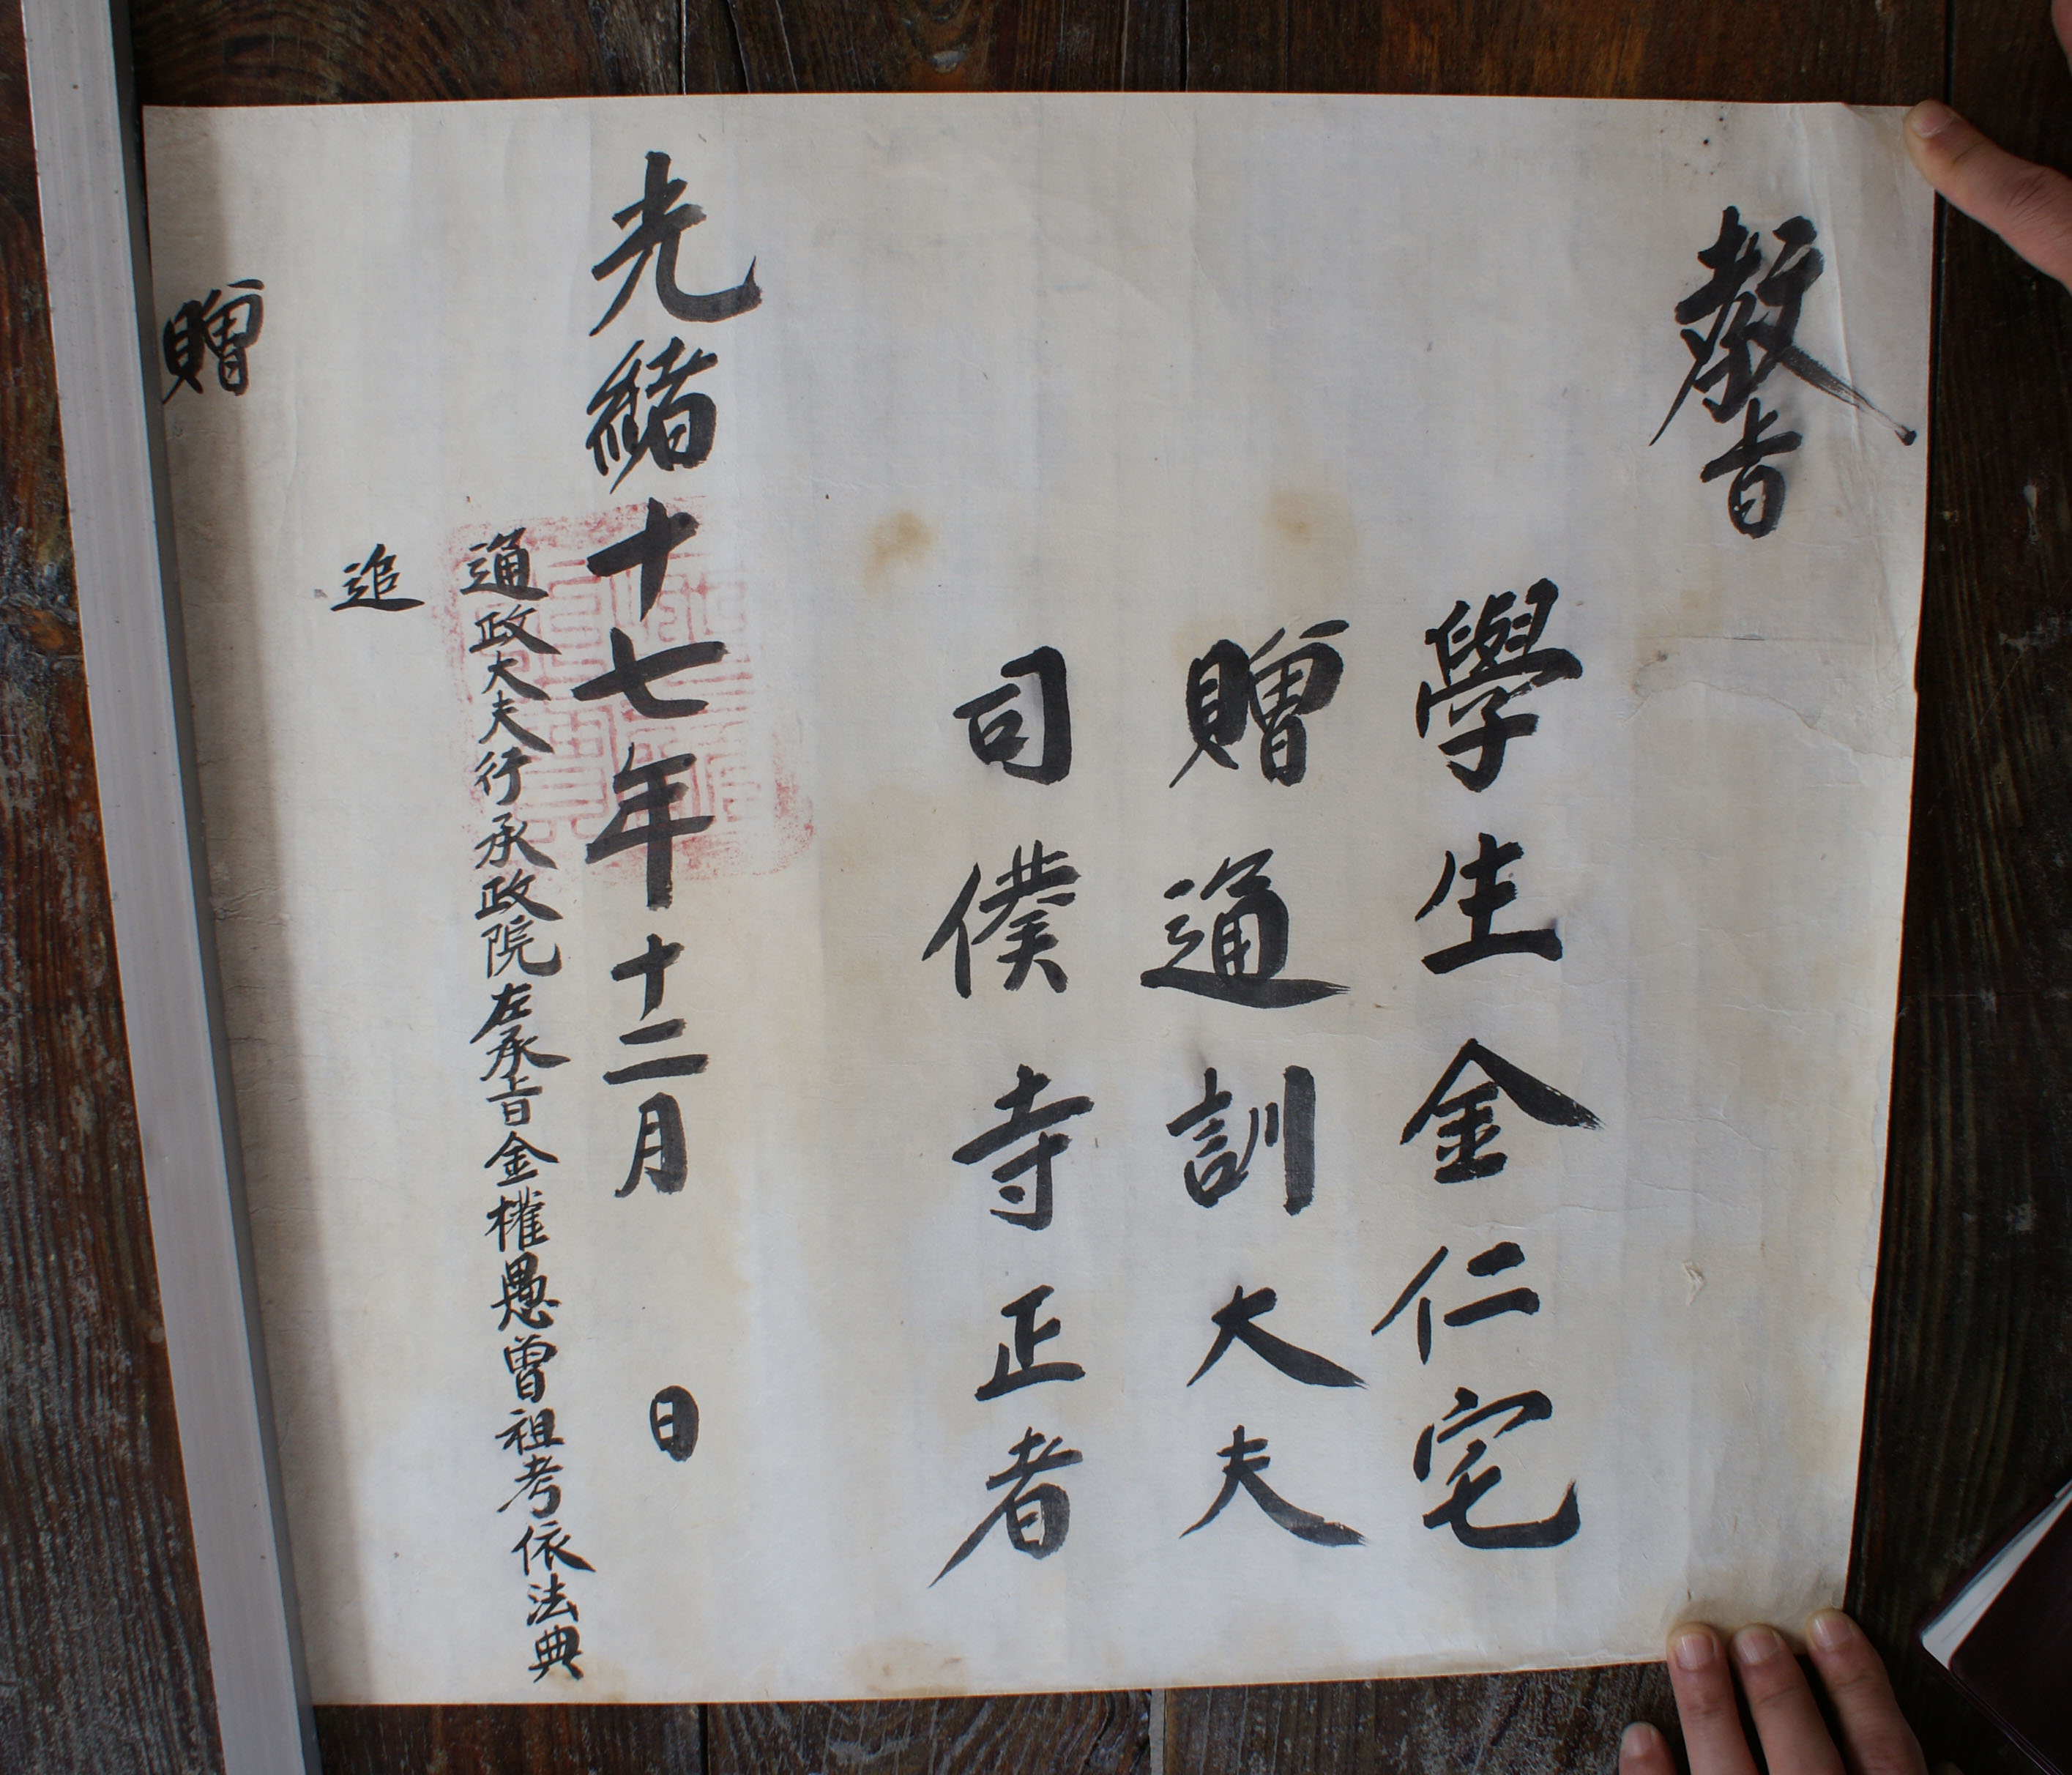 敎旨
學生金仁宅
贈通訓大夫
司僕寺正者
光緖十七年十二月 日
通政大夫行承政院左承旨金權愚曾祖考依法典
追
贈